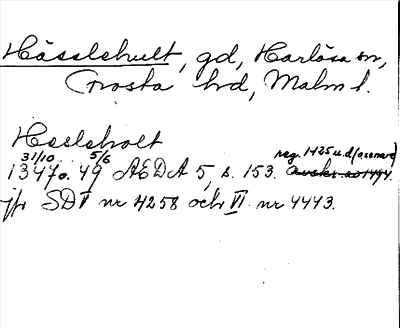 Hässlehult, gd, Harlösa sn,
Frosta hd, Malm l.
Hesleholt
31/10 5/6 reg. 1425 u.d/(
1347 o. 49 AEDA 5, s. 153. avskr. ao 1494.
jfr SD V nr 4258 och VI nr 4443.